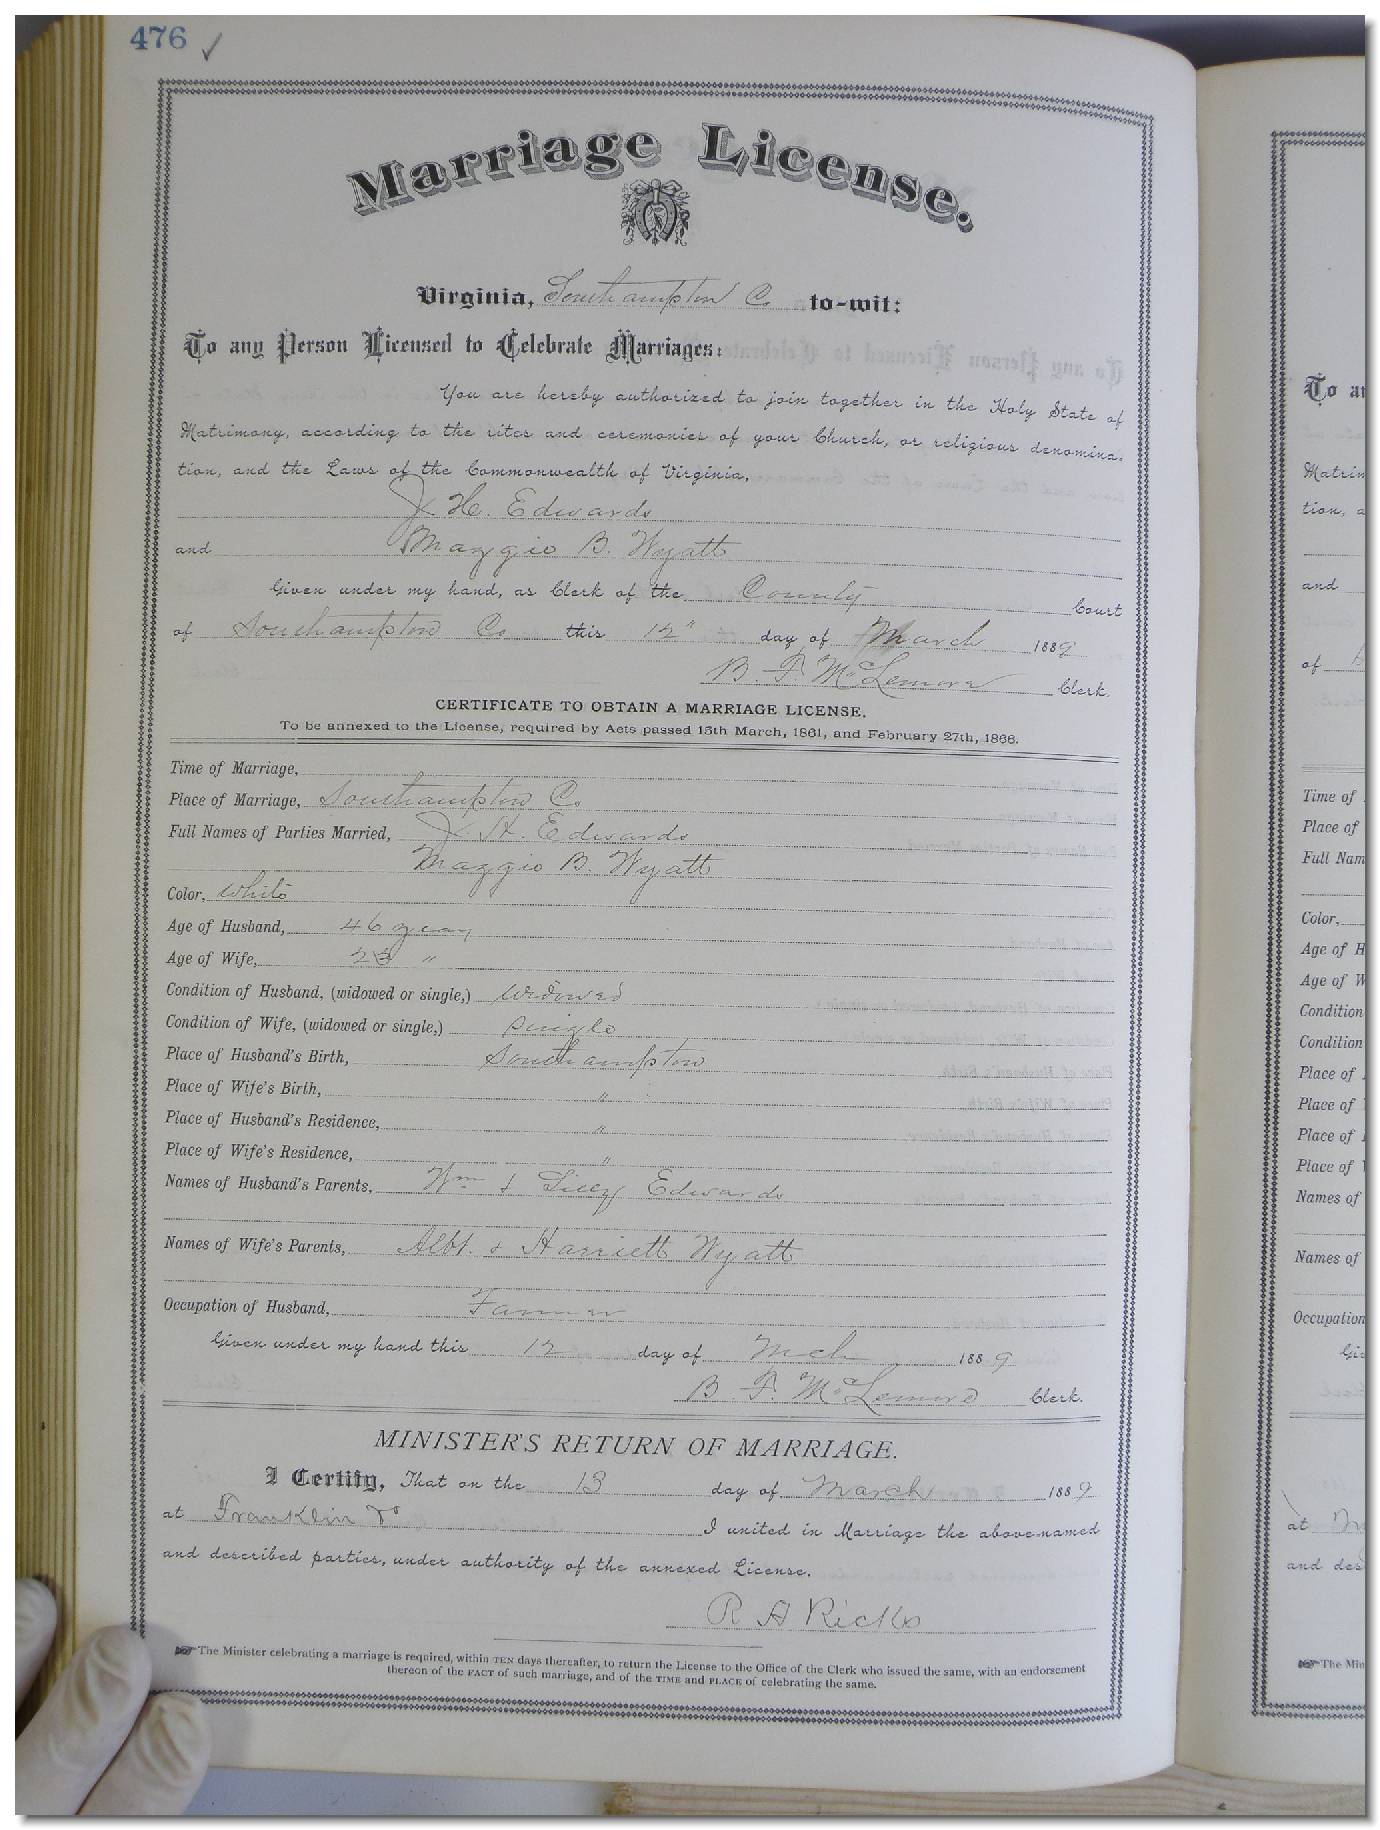 476 ✓
Marriage License.
Virginia, Southampton Co to-wit:
To any Person Licensed to Celebrate Marriages:
You are hereby authorized to join together in the Holy State of
Matrimony, according to the rites and ceremonies of your Church, or religious denomina-
tion, and the Laws of the Commonwealth of Virginia,
J. H. Edwards
and Maggie B. Wyatt
Given under my hand, as Clerk of the County Court
of Southampton Co this 12" day of March 1889
B. F. McLemore Clerk.
CERTIFICATE TO OBTAIN A MARRIAGE LICENSE.
To be annexed to the License, required by Acts passed 15th March, 1861, and February 27th, 1866.
Time of Marriage,
Place of Marriage, Southampton Co
Full Names of Parties Married, J. H. Edwards
Maggie B. Wyatt
Color, White
Age of Husband, 46 years
Age of Wife, 23 "
Condition of Husband, (widowed or single,) widowed
Condition of Wife, (widowed or single,) single
Place of Husband's Birth, Southampton
Place of Wife's Birth, "
Place of Husband's Residence, "
Place of Wife's Residence, "
Names of Husband's Parents, Wm & Edwards
Names of Wife's Parents, Albt. & Harriett Wyatt
Occupation of Husband, Farmer
Given under my hand this 12 day of Mch 1889
B. F. McLemore Clerk.
MINISTER'S RETURN OF MARRIAGE.
I Certify, That on the 13 day of March 1889
at Franklin I united in Marriage the above-named
and described parties, under authority of the annexed License.
R A Ricks
☞ The Minister celebrating a marriage is required, within TEN days thereafter, to return the License to the Office of the Clerk who issued the same, with an endorsement
thereon of the FACT of such marriage, and of the TIME and PLACE of celebrating the same.
To a
Matrim
tion, a
and
of
Time of
Place of
Full Nam
Color,
Age of H
Age of W
Condition
Condition
Place of
Place of
Place of
Place of
Names of
Names of
Occupation
at
and des
☞ The Min